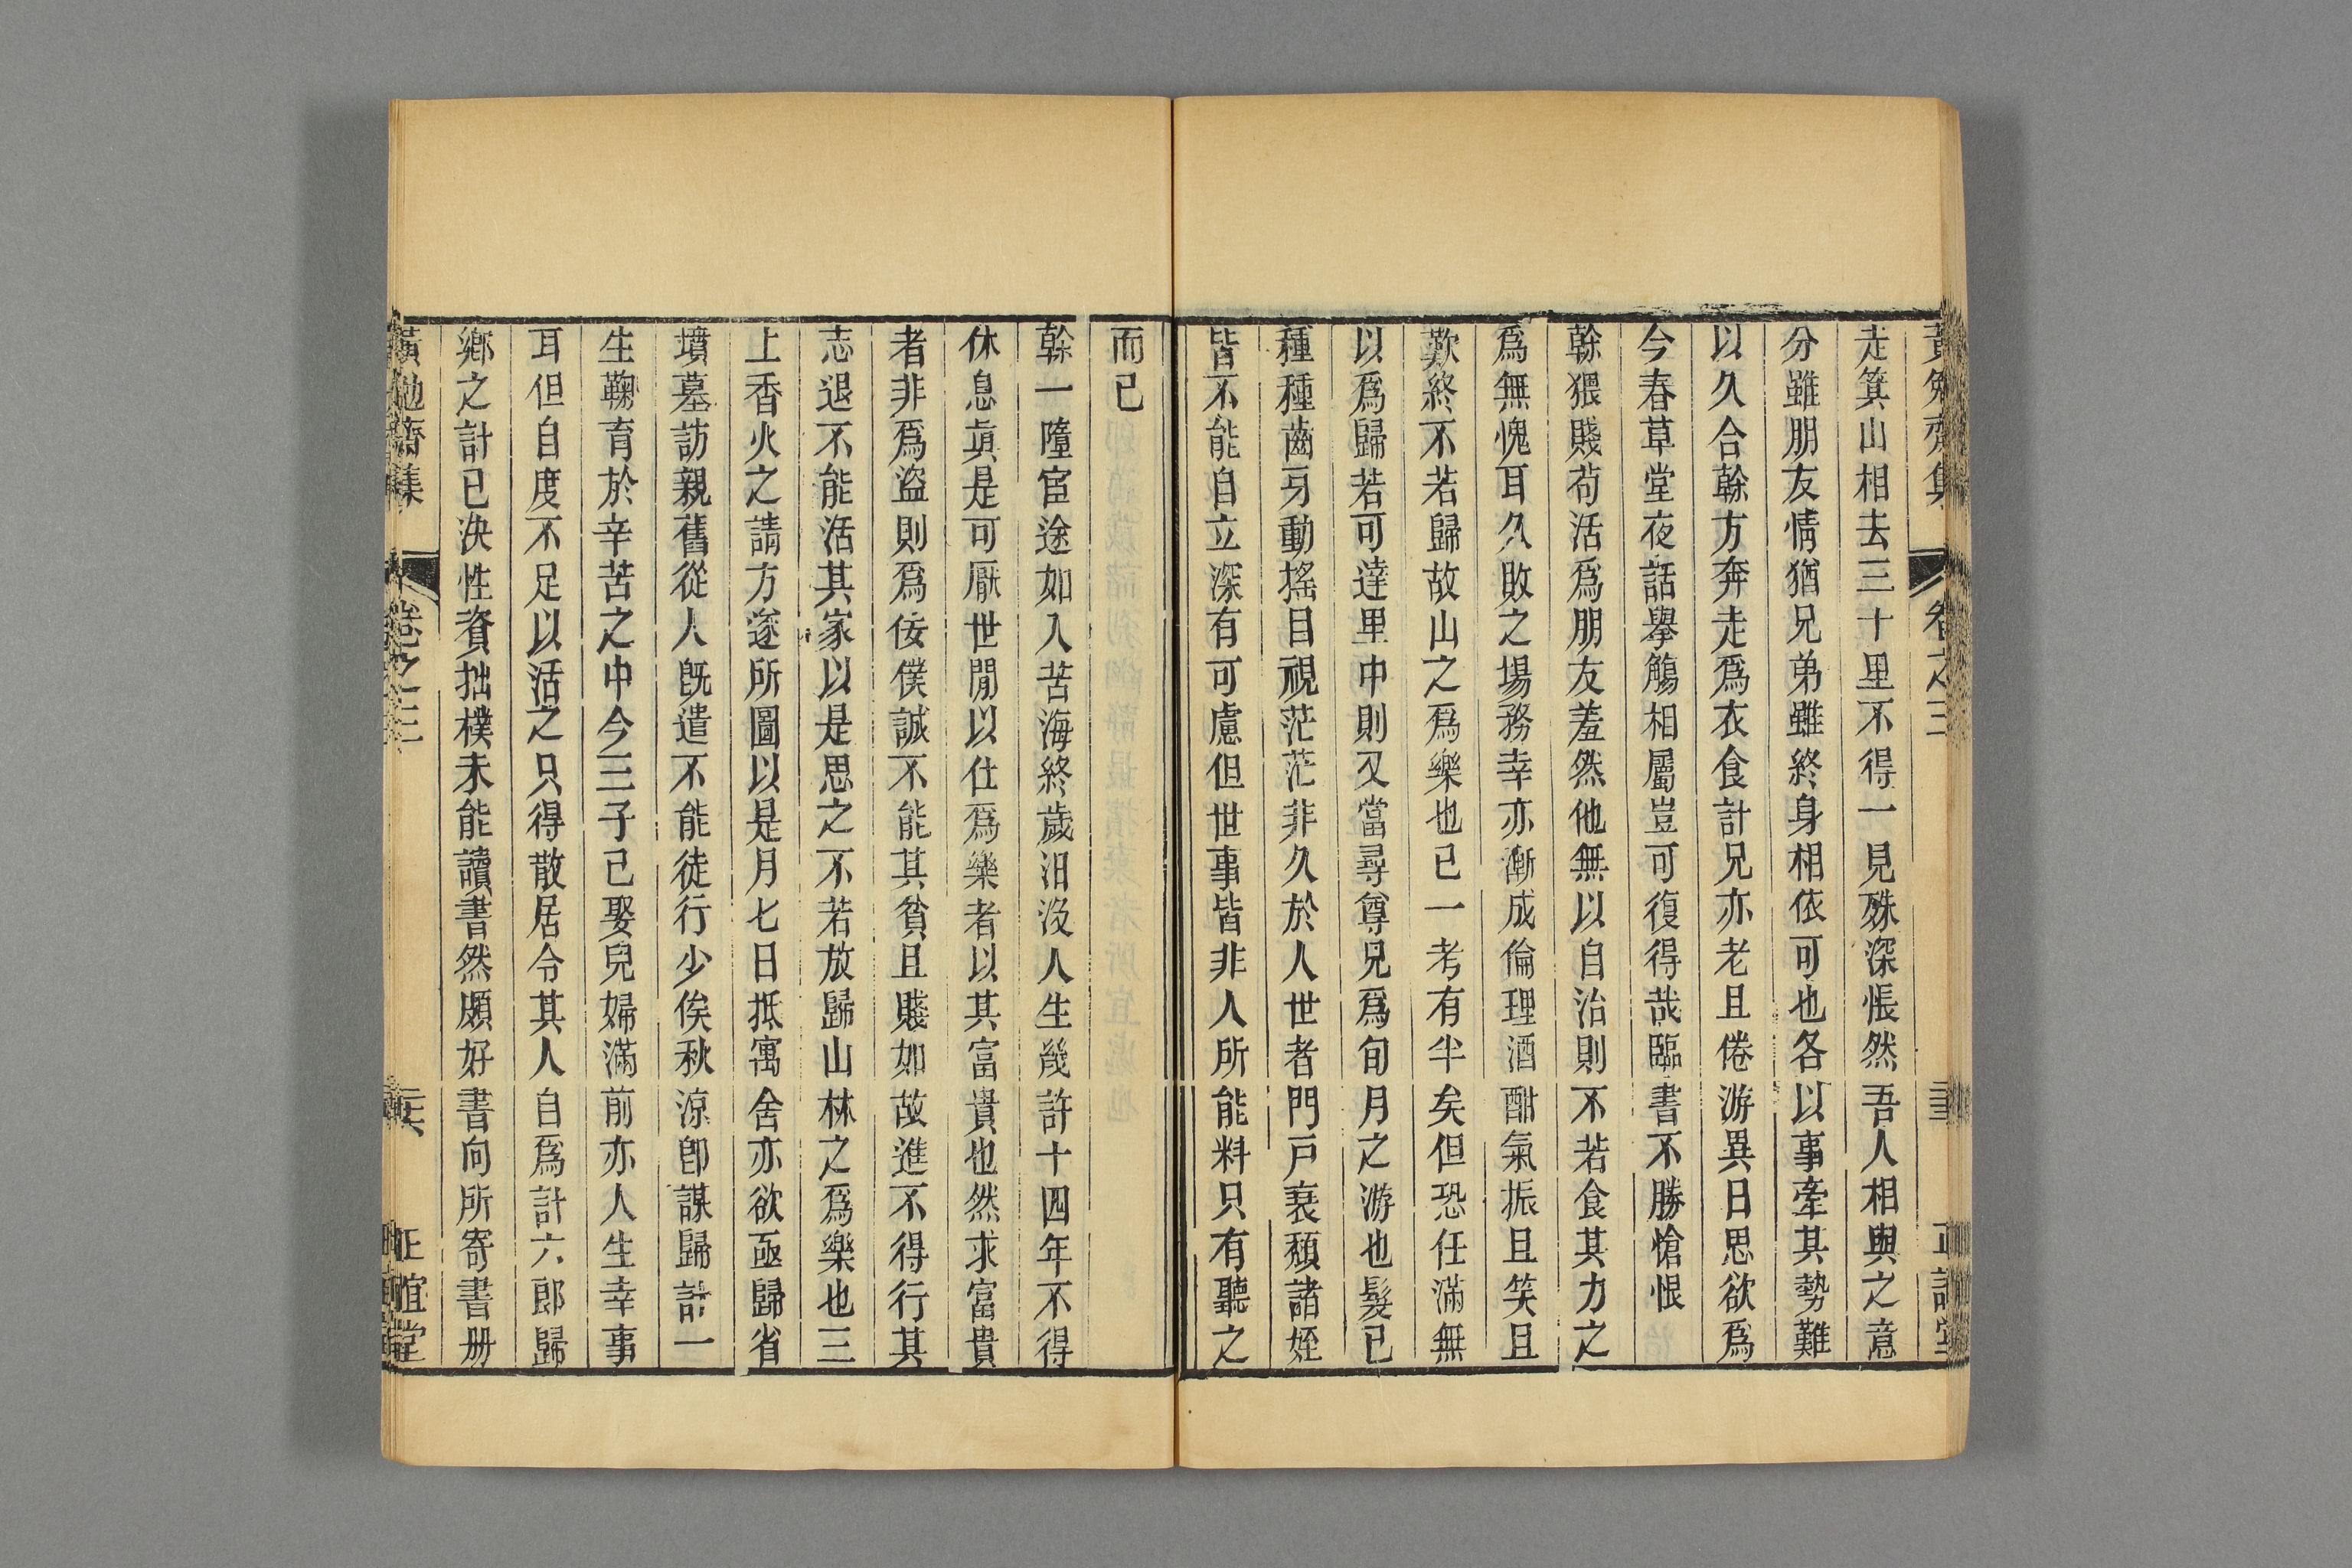 黃勉齋集
卷之三
正誼堂
走箕山相去三十里不得一見殊深悵然吾人相與之意
分雖朋友情猶兄弟雖終身相依可也各以事牽其勢難
以久合榦方奔走爲衣食計兄亦老且倦游異日思欲爲
今春草堂夜話舉觴相屬豈可復得哉臨書不勝愴恨
榦猥賤苟活爲朋友羞然他無以自治則不若食其力之
爲無愧耳久敗之場務幸亦漸成倫理酒酣氣振且笑且
歎終不若歸故山之爲樂也已一考有半矣但恐任滿無
以爲歸若可達里中則又當尋尊兄爲旬月之游也髮已
種種齒牙動搖目視茫茫非久於人世者門戸衰頹諸姪
皆不能自立深有可慮但世事皆非人所能料只有聽之
而已
榦一墮宦途如入苦海終歲汨沒人生幾許十四年不得
休息眞是可厭世閒以仕爲樂者以其富貴也然求富貴
者非爲盜則爲佞僕誠不能其貧且賤如故進不得行其
志退不能活其家以是思之不若放歸山林之爲樂也三
上香火之請方遂所圖以是月七日抵寓舍亦欲亟歸省
墳墓訪親舊從人旣遣不能徒行少俟秋涼卽謀歸計一
生鞠育於辛苦之中今三子已娶兒婦滿前亦人生幸事
耳但自度不足以活之只得散居令其人自爲計六郎歸
鄉之計已決性資拙樸未能讀書然頗好書向所寄書册
黃勉齋集
卷之三
正誼堂